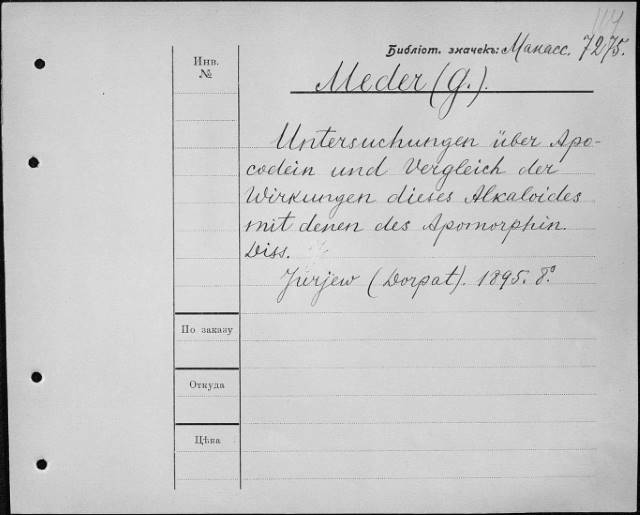 114
Библіот. значекъ: Манасс. 7275.
Инв.
№
Meder (G.).
Untersuchungen über Apo-
codein und Vergleich der
Wirkungen dieses Alkaloides
mit denen des Apomorphin.
Diss.
Jurjew (Dorpat). 1895. 8°
По заказу
Откуда
Цѣна